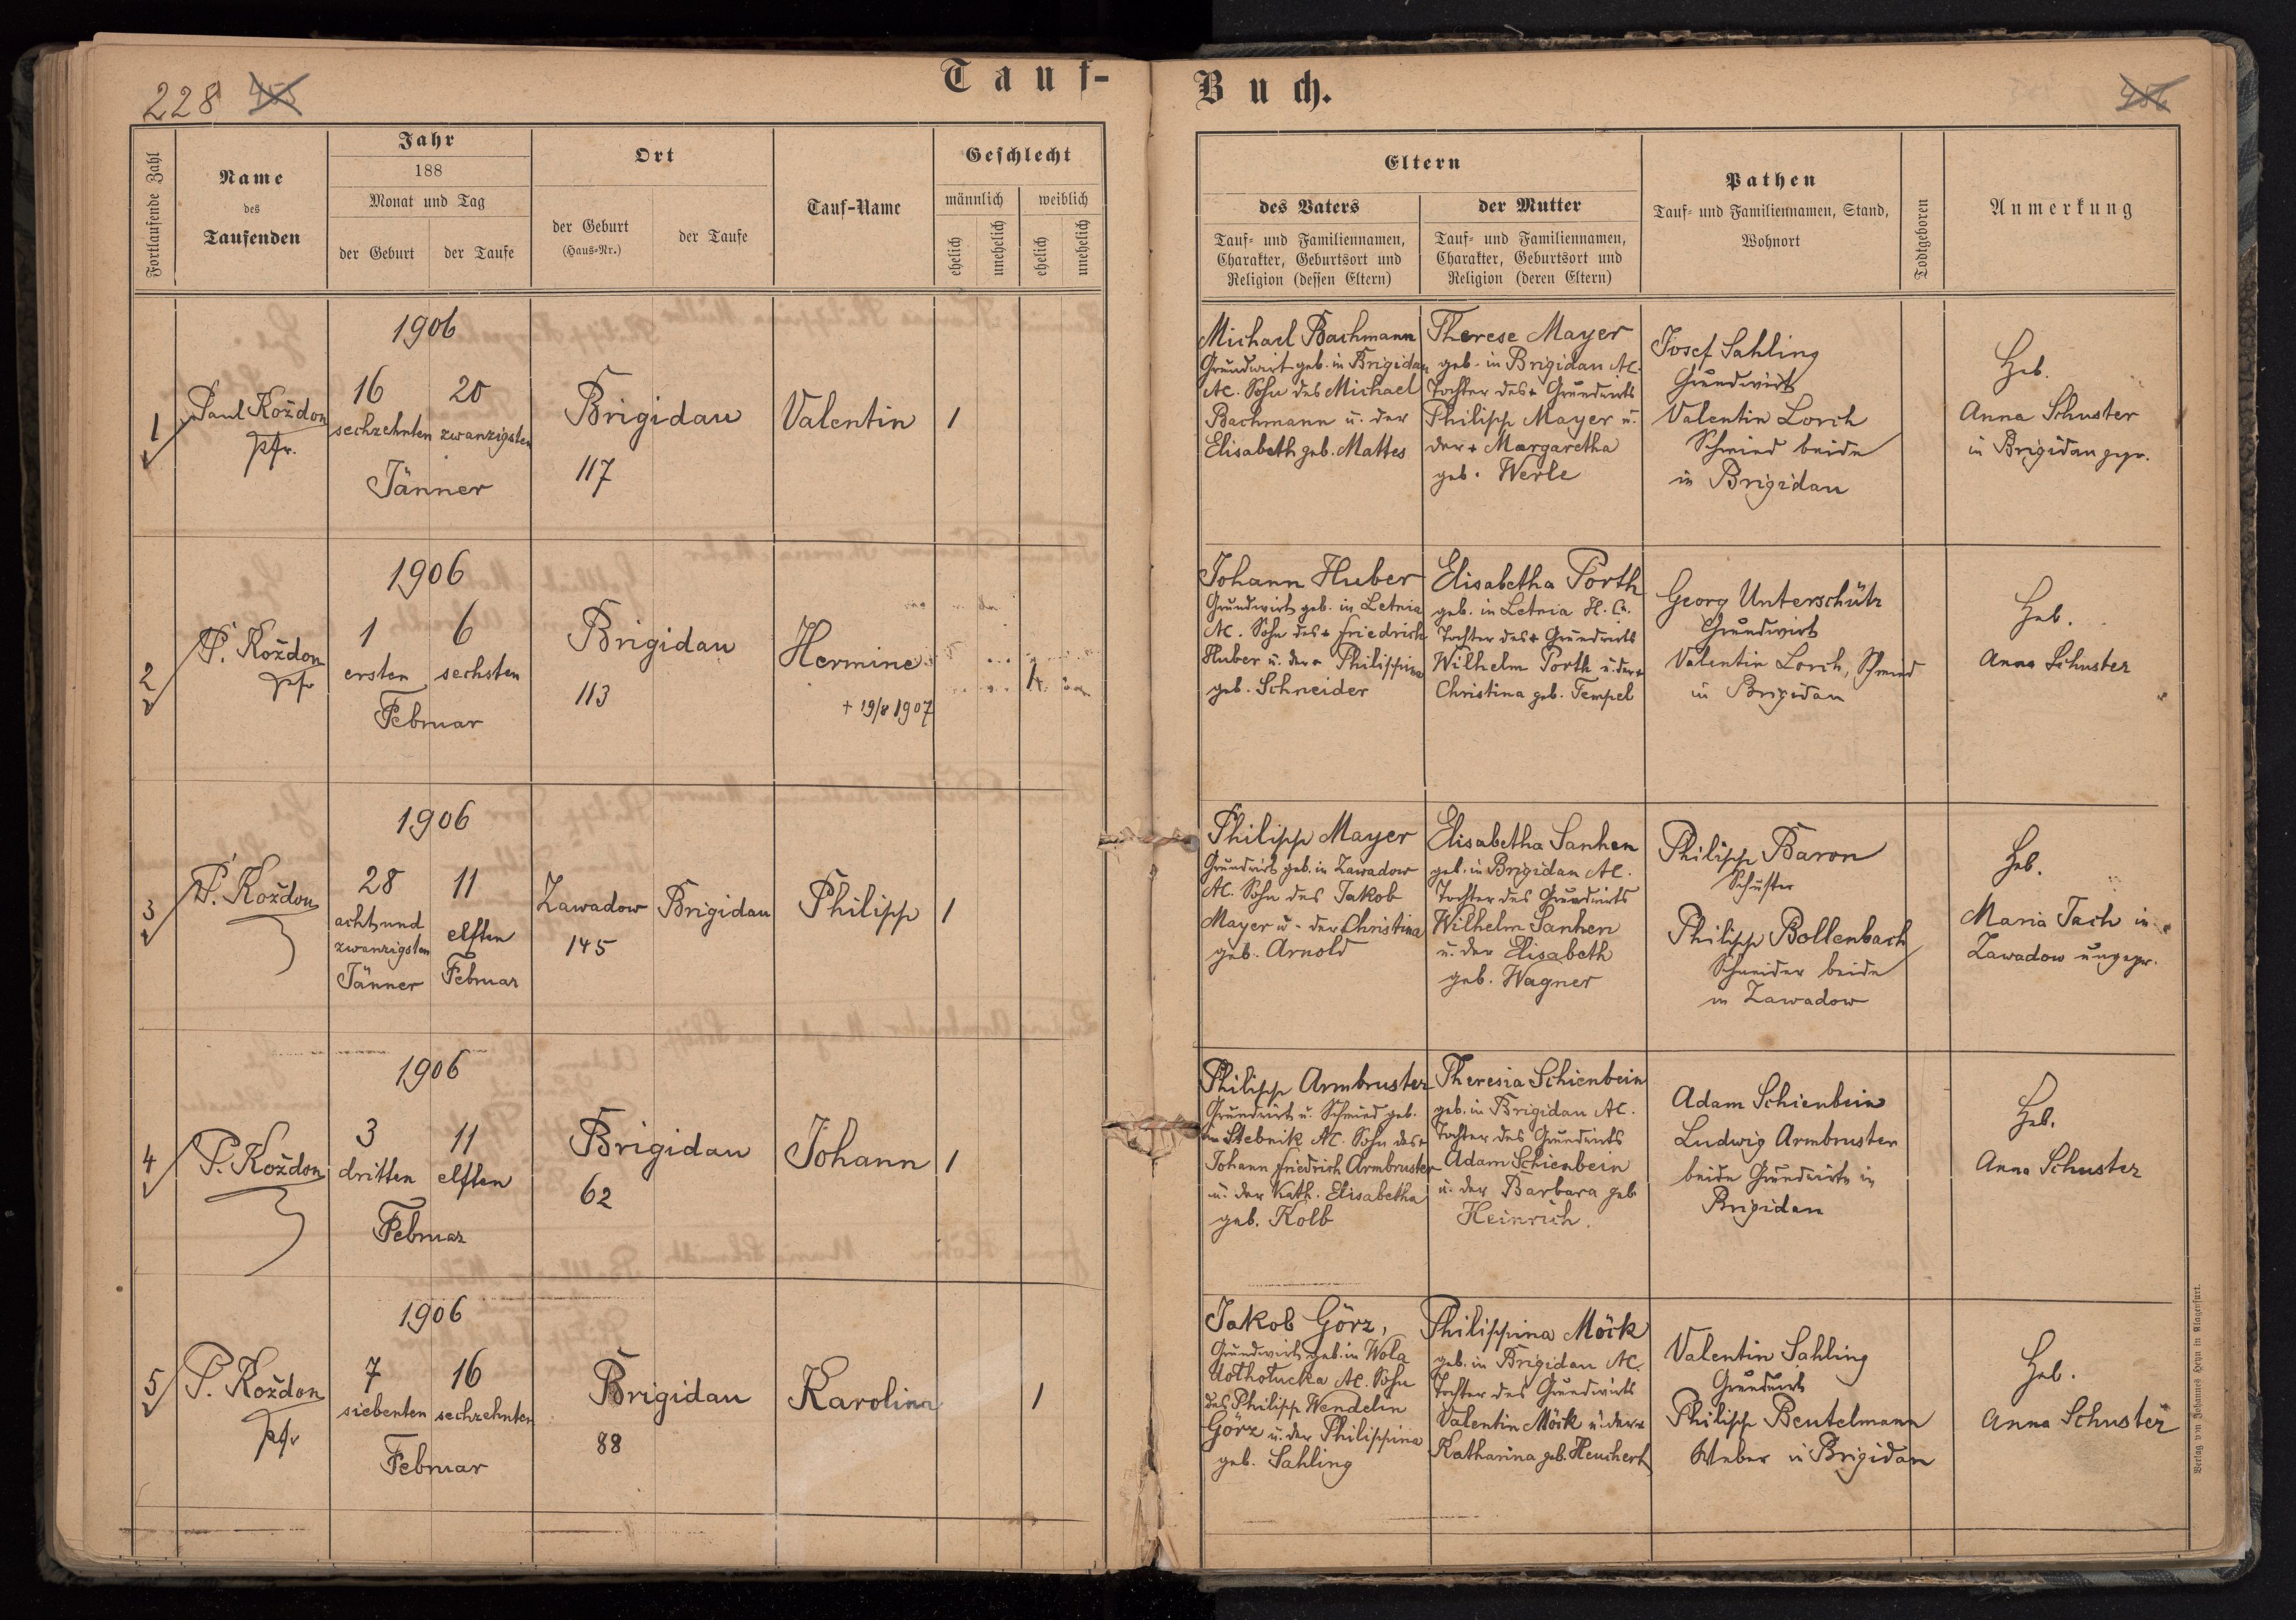 228 455
Tauf-
Buch.
456
Fortlaufende Zahl
Name
des
Taufenden
Jahr
188
Monat und Tag
der Geburt
der Taufe
Ort
der Geburt
(Haus-Nr.)
der Taufe
Tauf-Name
Geschlecht
männlich
weiblich
ehelich
unehelich
ehelich
unehelich
Eltern
des Vaters
Tauf- und Familiennamen,
Charakter, Geburtsort und
Religion (dessen Eltern)
der Mutter
Tauf- und Familiennamen,
Charakter, Geburtsort und
Religion (deren Eltern)
Pathen
Tauf- und Familiennamen, Stand,
Wohnort
Todtgeboren
Anmerkung
1
Paul Koždon
pfr.
1906
16
sechzehnten
20
zwanzigsten
Jänner
Brigidau
117
Valentin
1
Michael Bachmann
Grundwirt geb. in Brigidau
AC. Sohn des Michael
Bachmann u. der
Elisabeth geb. Mattes
Therese Mayer
geb. in Brigidau AC.
Tochter des + Grundwirts
Philipp Mayer u.
der + Margaretha
geb. Werle
Josef Sahling
Grundwirt
Valentin Lorch
Schmied beide
in Brigidau
Heb.
Anna Schuster
in Brigidau gepr.
2
P. Koždon
pfr
1906
1
ersten
6
sechsten
Februar
Brigidau
113
Hermine
+ 19/8 1907
1
Johann Huber
Grundwirt geb. in Letnia
AC. Sohn des + Friedrich
Huber u. der + Philippina
geb. Schneider
Elisabetha Porth
geb. in Letnia H.C.
Tochter des + Grundwirts
Wilhelm Porth u. der +
Christina geb. Tempel
Georg Unterschütz
Grundwirt
Valentin Lorch, Schmied
in Brigidau
Heb.
Anna Schuster
3
P. Koždon
1906
28
achtund
zwanzigsten
Jänner
11
elften
Februar
Zawadow
145
Brigidau
Philipp
1
Philipp Mayer
Grundwirt geb. in Zawadow
AC. Sohn des Jakob
Mayer u. der Christina
geb. Arnold
Elisabetha Sanhen
geb. in Brigidau AC.
Tochter des Grundwirts
Wilhelm Sanhen
u. der Elisabeth
geb. Wagner
Philipp Baron
Schuster
Philipp Bollenbach
Schneider beide
in Zawadow
Heb.
Maria Tach in
Zawadow ungepr.
4
P. Koždon
1906
3
dritten
11
elften
Februar
Brigidau
62
Johann
1
Philipp Armbruster
Grundwirt u. Schmied geb.
in Stebnik AC. Sohn des +
Johann Friedrich Armbruster
u. der Kath. Elisabetha
geb. Kolb
Theresia Schienbein
geb. in Brigidau AC.
Tochter des Grundwirts
Adam Schienbein
u. der Barbara geb
Heinrich.
Adam Schienbein
Ludwig Armbruster
beide Grundwirte in
Brigidau
Heb.
Anna Schuster
5
P. Koždon
pfr
1906
7
siebenten
16
sechzehnten
Februar
Brigidau
88
Karolina
1
Jakob Görz,
Grundwirt geb. in Wola
AC. Sohn
des Philipp Wendelin
Görz u. der Philippina
geb. Sahling
Philippina Möck
geb. in Brigidau AC.
Tochter des Grundwirts
Valentin Möck u. der +
Katharina geb. Heuchert
Valentin Sahling
Grundwirt
Philipp Beutelmann
Weber in Brigidau
Heb.
Anna Schuster
Verlag von Johannes Heyn in Klagenfurt.